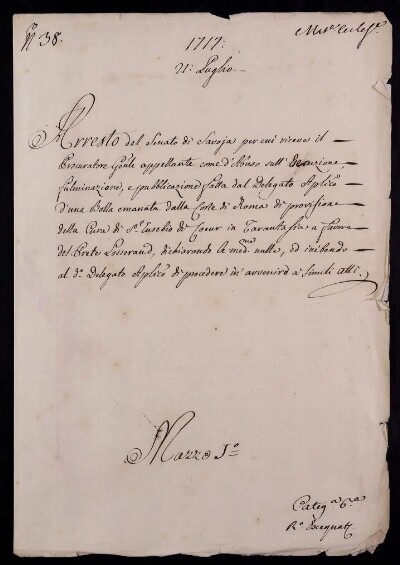 N 38.
Mat.e Eccles.e
1717.
21. Luglio.
Arresto del Senato di Savoja per cui riceve il
Procuratore Gnle appellante come d'Abuso sull' Esecuzione,
fulminazione, e pubblicazione fatta dal Delegato Aplico
d'una Bolla emanata dalla Corte di Roma di provisione
della Cura di St. Eusebio di Coeur in Tarantasia a favore
del Prete dichiarando la med.ma nulla, ed inibendo
al do. Delegato Aplico di procedere in avvenire a simili atti.
Mazzo 1o
Categ.a 6.a
Ro. Exequatr.